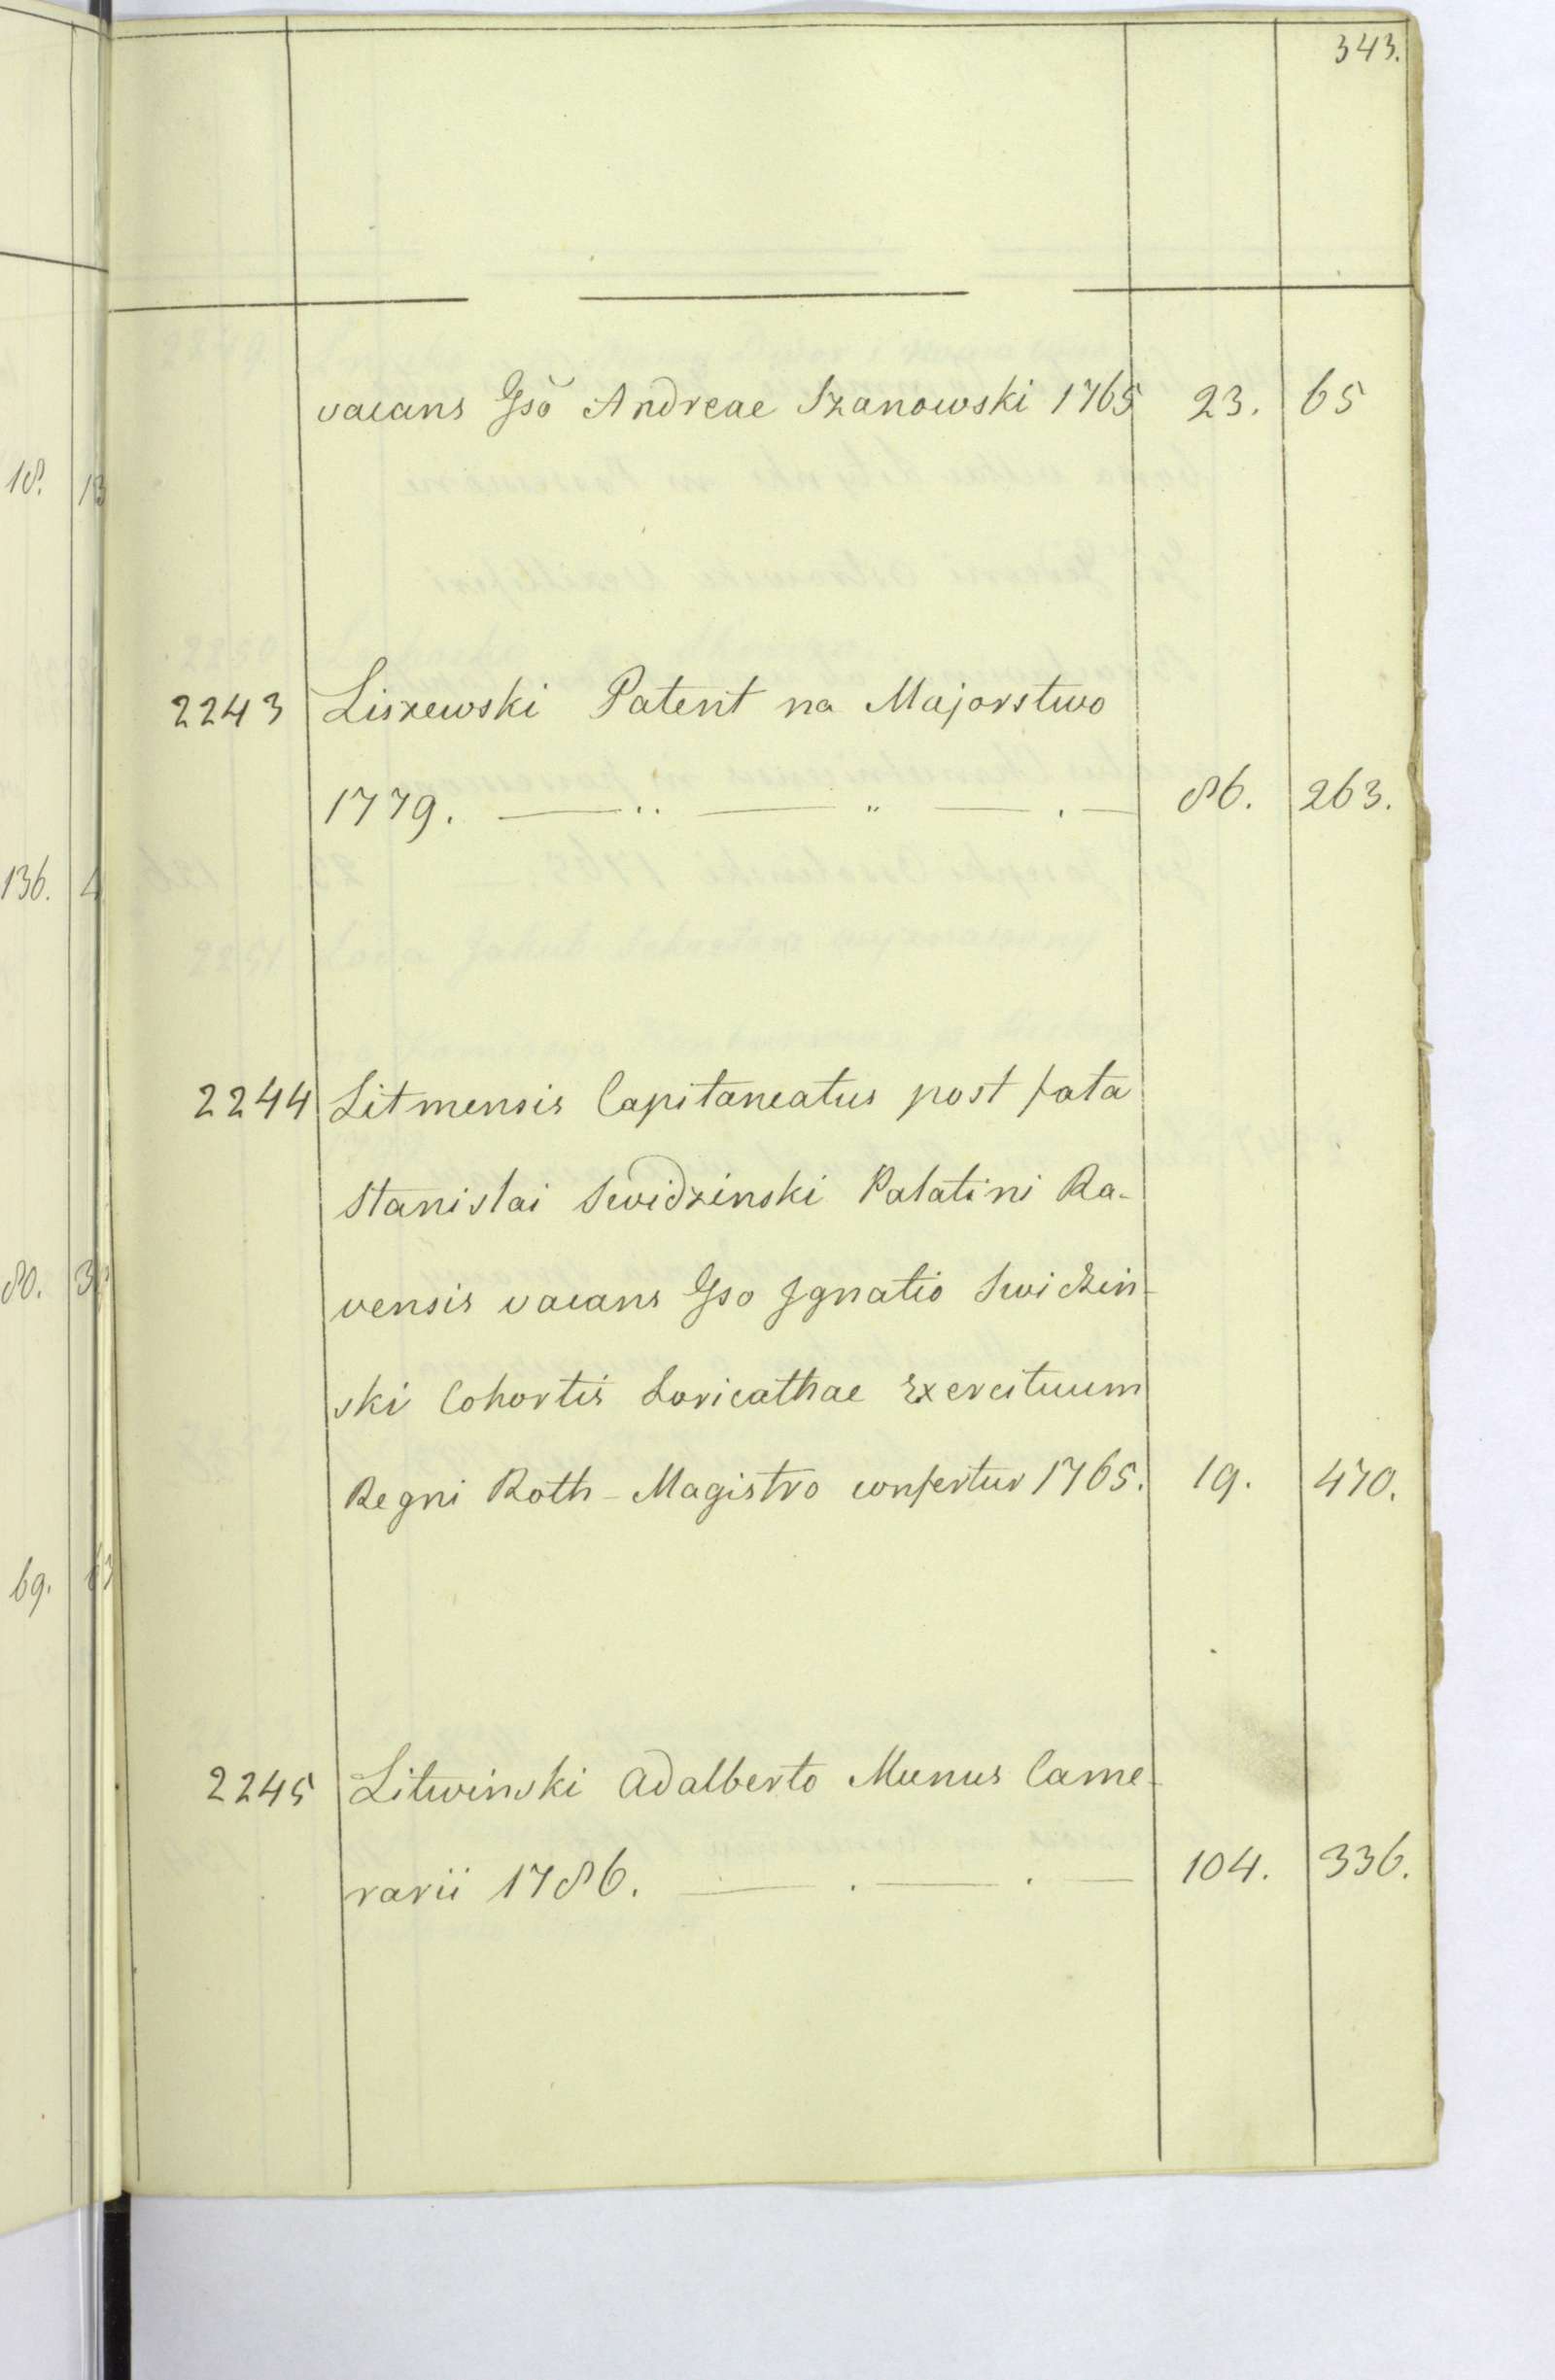 343.
vacans Gso Andreae Szanowski 1765 23. 65
2243 Liszewski Patent na Majorstwo
1779. 86. 263.
2244 Litmensis Capitaneatus post fata
Stanislai Swidzinski Palatini Ra-
vensis vacans Gso Jgnatio Swidzin-
ski Cohortis Loricathae Exercituum
Regni Roth-Magistro confertur 1765. 19. 470.
2245 Litwinski Adalberto Munus Came-
rarii 1786. 104. 336.
18.
136.
80.
69.